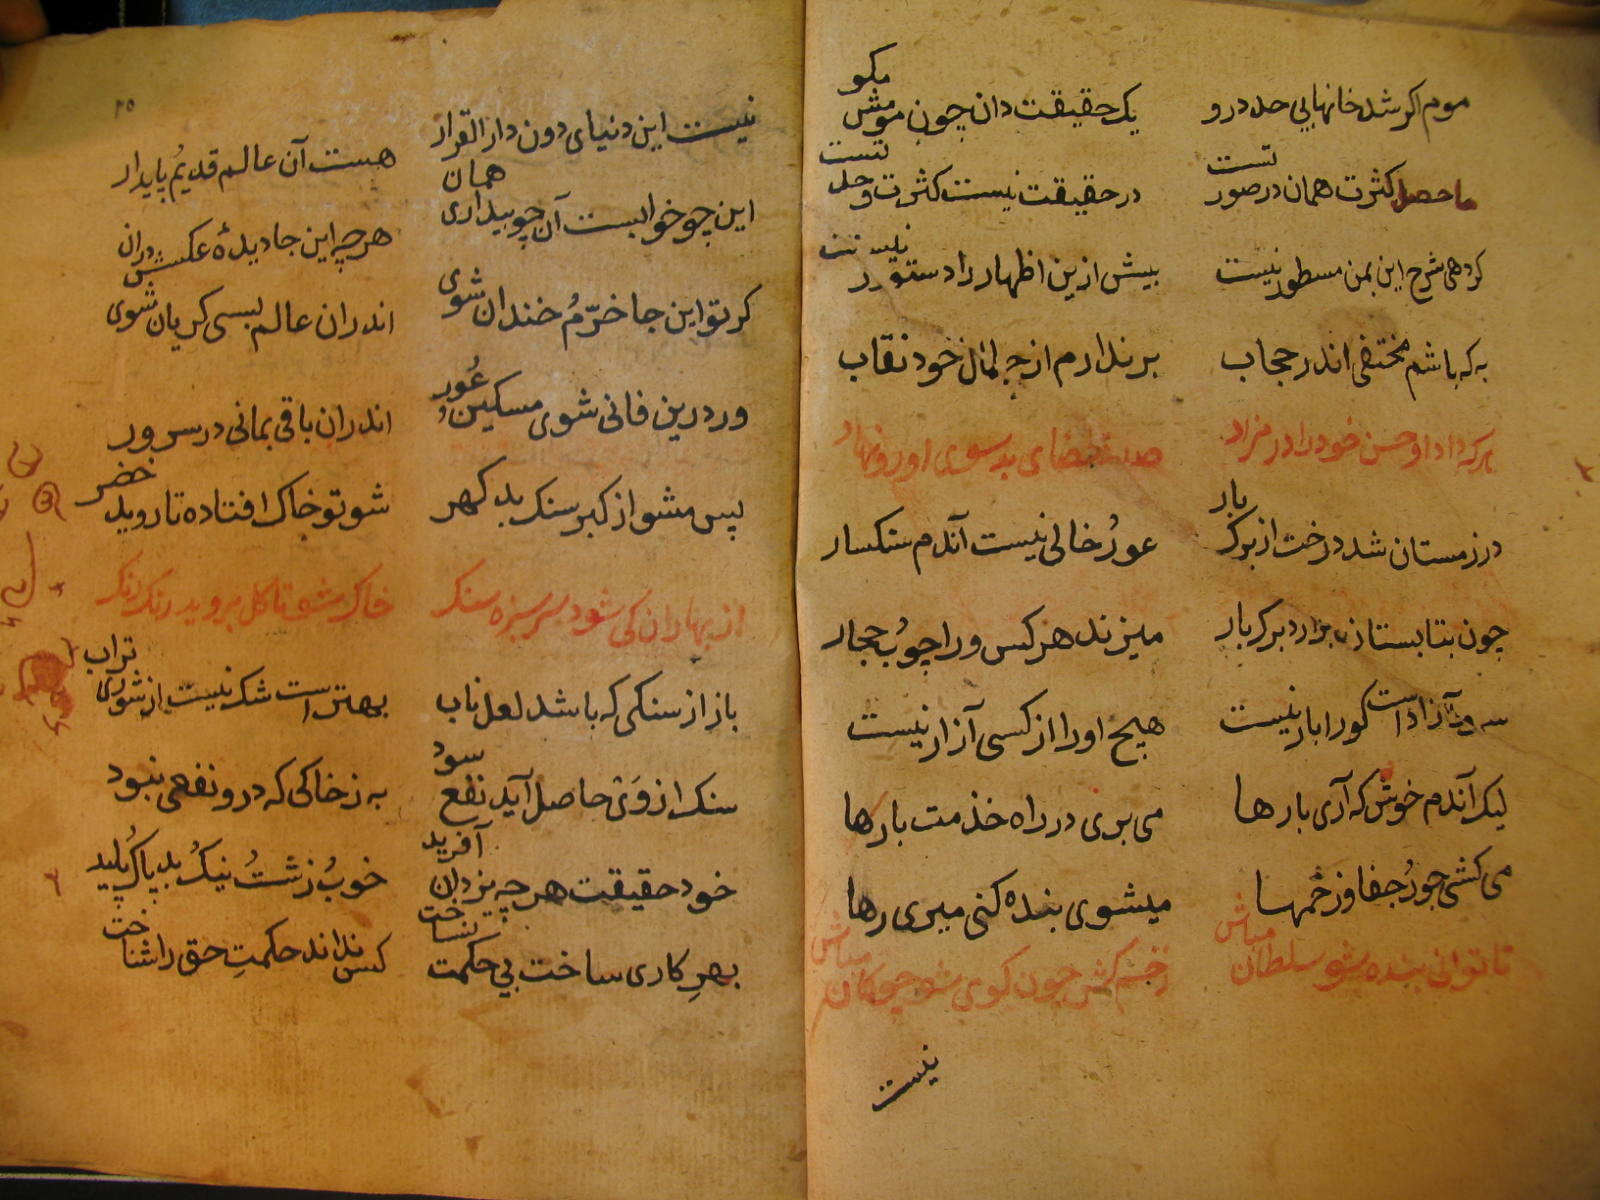 موم اکر شد خانهایی حد درو یک حقیقت دان چون موش مکو
ما حصل کثرت همان در صور تست در حقیقت نیست کثرت وحد تست
کردهی شرح این بمن مسطور نیست بیش ازین اظهار را دستور نیست
به که باشم مختفی اندر حجاب برندارم از جمال خود نقاب
هرکه داد او حسن خود را در مزاد صد قضای بد سوی او رو نهاد
در زمستان شد درخت از برک بار عورُ خالی نیست آندم سنکسار
چون بتابستان برارد برک بار میزند هرکس ورا چوبُ حجار
سرو آزاد است کورا بار نیست هیچ اورا از کسی آزار نیست
لیک آندم خوش که آری بارها می بری در راه خذمت بارها
می کشی جورُ جفا و زخمها میشوی بنده کنی میری رها
تا توانی بنده شو سلطان مباش زخم کش چون کوی شو چوکان مباش
نیست
۲۵
نیست این دنیای دون دار القرار هست آن عالم قدیمُ پایدار
این چو خوابست آن چو بیداری همان هرچه این جا دیدهٔ عکسش دران
کر تو این جا خرّمُ خندان شوی اندران عالم بسی کریان شوی
ور درین فانی شوی مسکینُ عُور اندران باقی بمانی در سرور
پس مشو از کبر سنک بد کهر شو تو خاک افتاده تا روید خضر
از بهاران کی شود سر سبزه سنک خاک شو تا کل بروید رنک رنک
باز از سنکی که باشد لعل ناب بهتر است شک نیست از شوری تراب
سنک از وَیْ حاصل آید نفع سود به ز خاکی که درو نفعی نبود
خود حقیقت هرچه یزدان آفرید خوبُ زشتُ نیکُ بد پاکُ پلید
بهرِ کاری ساخت بی حکمت نساخت کس نداند حکمتِ حق را شناخت